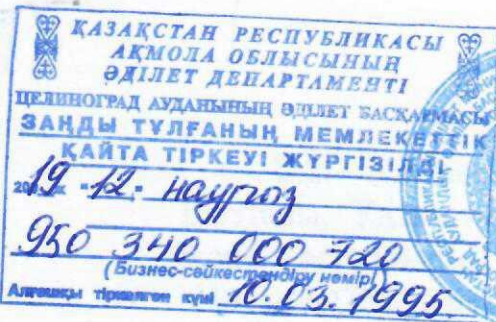 ҚАЗАҚСТАН РЕСПУБЛИКАСЫ
АҚМОЛА ОБЛЫСЫНЫҢ
ӘДІЛЕТ ДЕПАРТАМЕНТІ
ЦЕЛИНОГРАД АУДАНЫНЫҢ ӘДІЛЕТ БАСҚАРМАСЫ
ЗАҢДЫ ТҰЛҒАНЫҢ МЕМЛЕКЕТТІК
ҚАЙТА ТІРКЕУІ ЖҮРГІЗІЛДІ
2019 ж "12" наурыз
950 340 000 720
(Бизнес-сәйкестендіру нөмірі)
Алғашқы тіркелген күні 10.03.1995